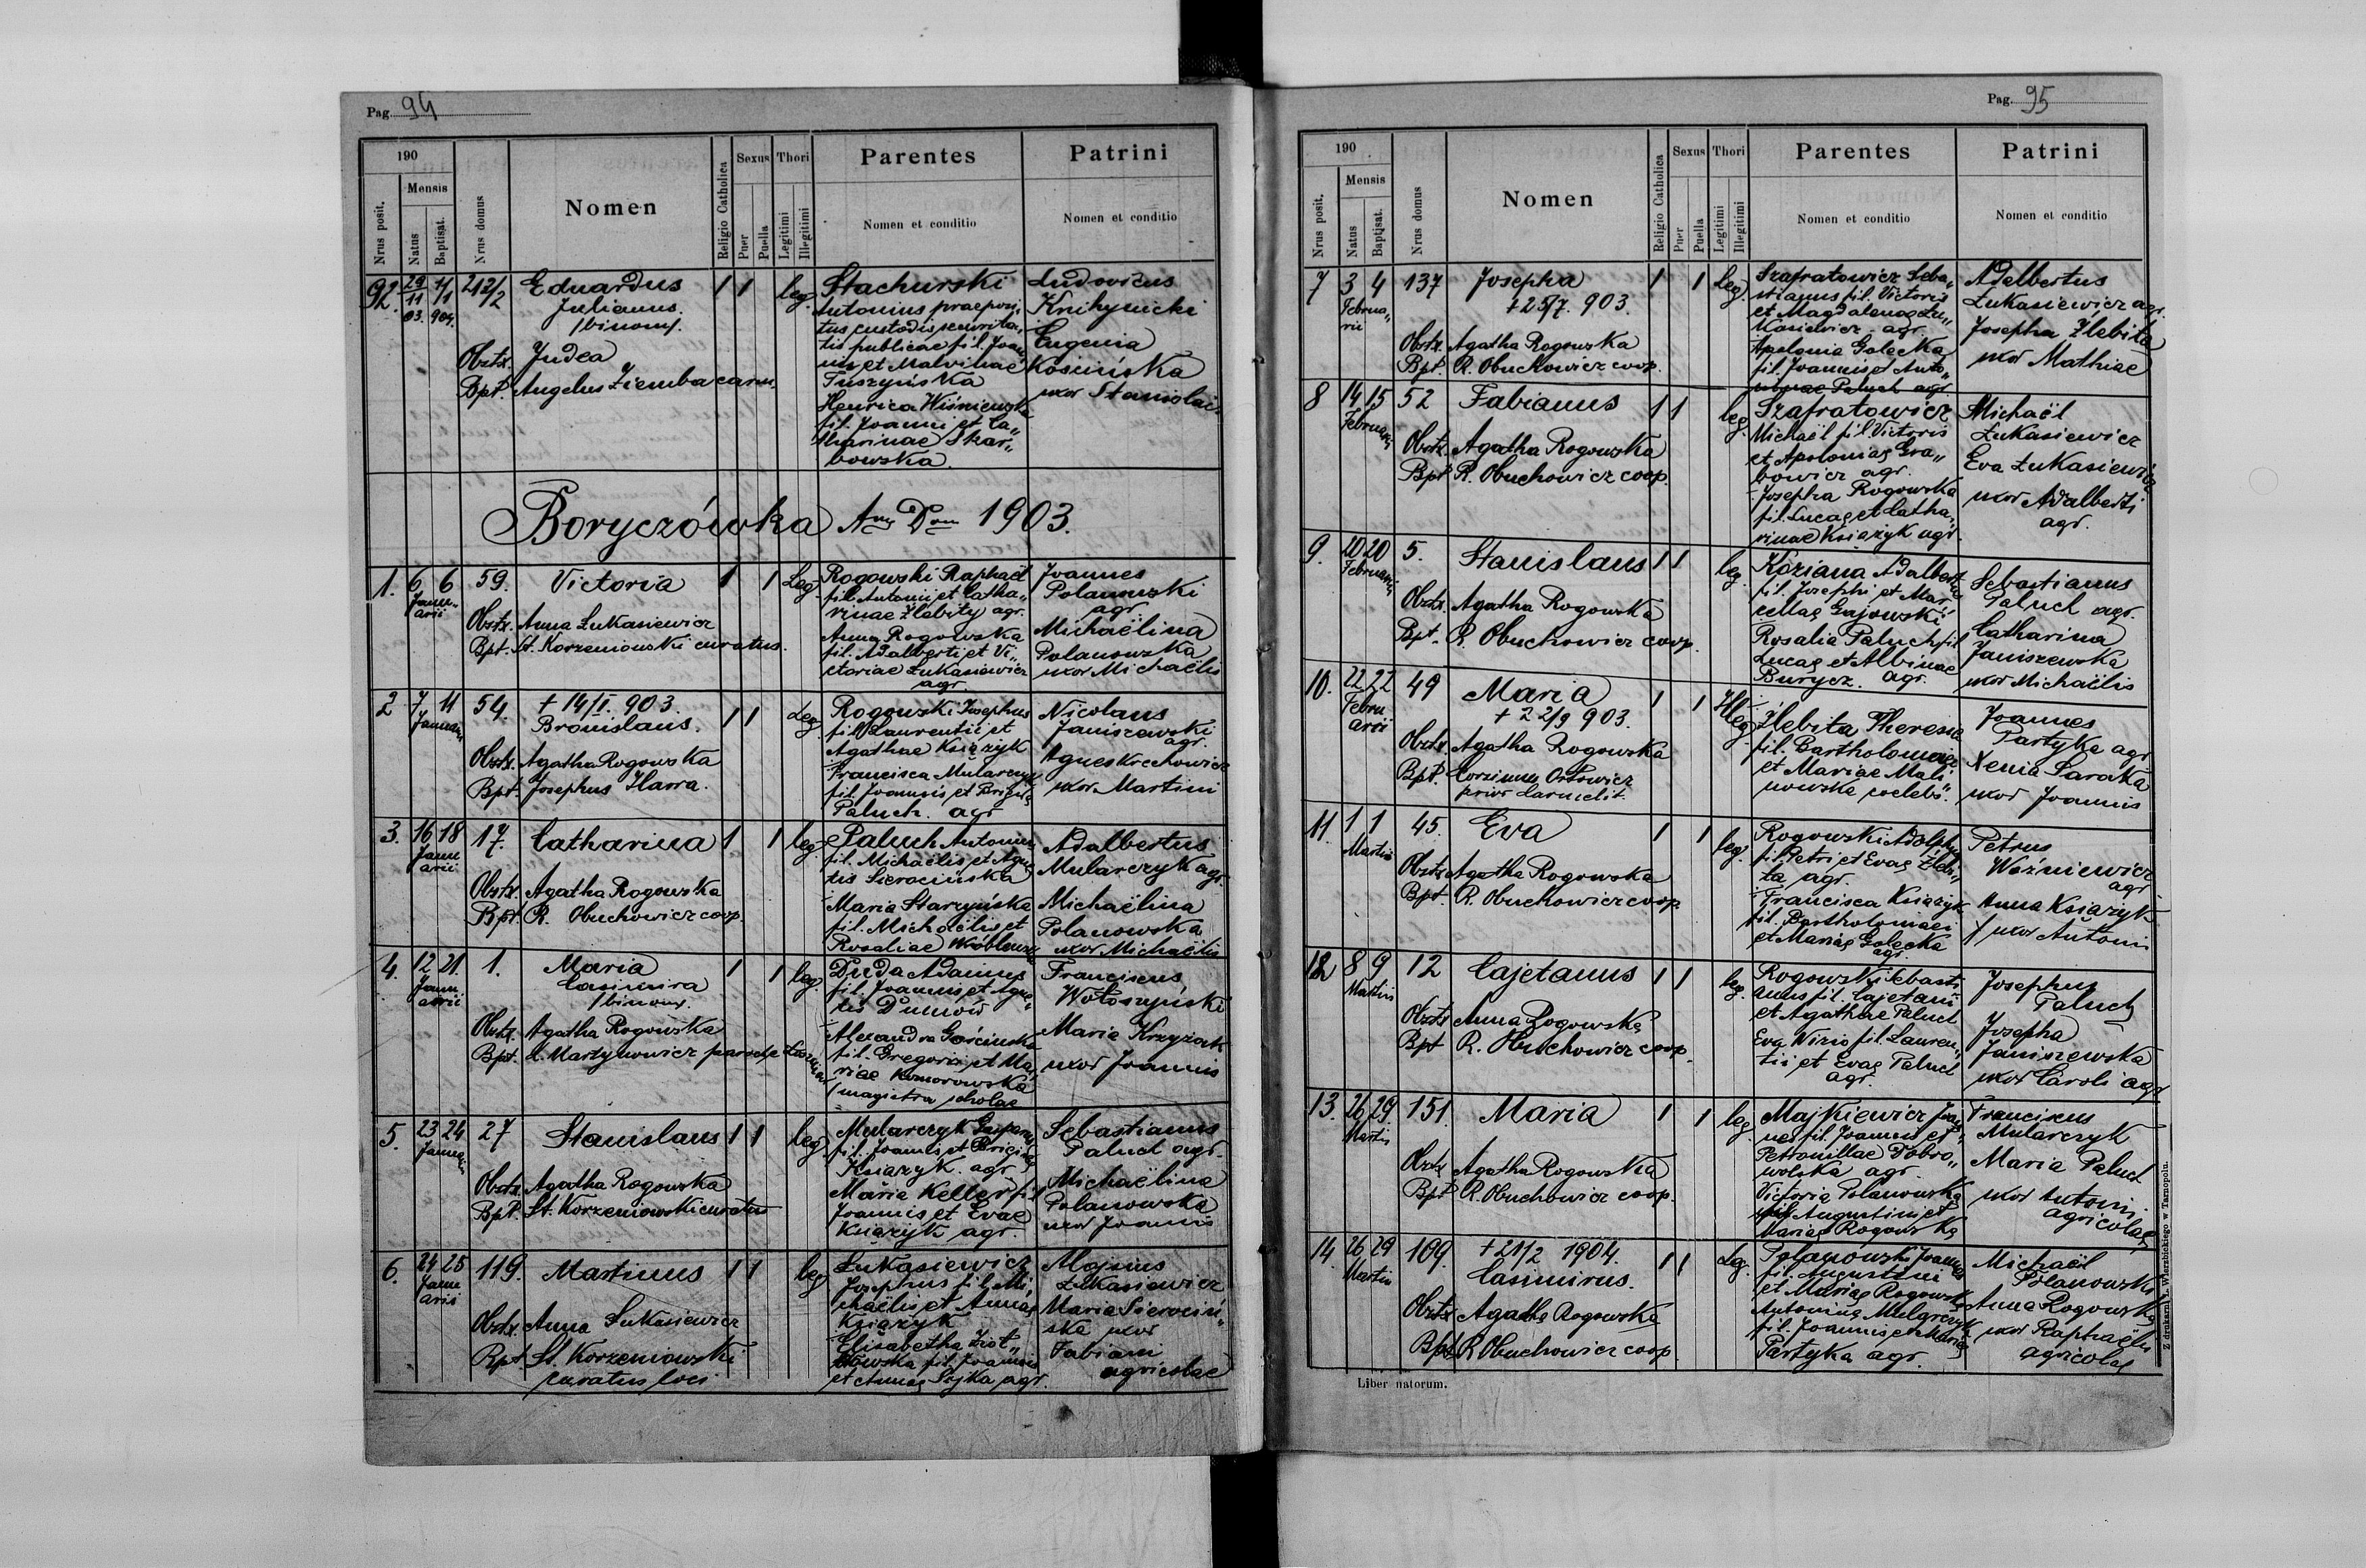 Pag. 94
190
Nrus posit.
Mensis
Natus
Baptisat.
Nrus domus
Nomen
Religio Catholica
Sexus
Puer
Puella
Thori
Legitimi
Illegitimi
Parentes
Nomen et conditio
Patrini
Nomen et conditio
92. 29/11 03. 4/1 904. 212/2 Eduardus 1 1 leg.
Julianus
/binom/.
Obstx. Judea
Bpt. Angelus Ziemba
Stachurski
Antonius praeposi„
tus custodis securita„
tis publicae fil. Joan„
nis et Malvinae
Tuszyńska
Henrica Wiśniewska
fil. Joanni et Ca„
tharinae Skar„
bowska.
Ludovicus
Knihynicki
Eugenia
Kosińska
uxor Stanislai
Boryczówka Ano Dom 1903.
1. 6 6 Januarii 59. Victoria 1 1 Leg.
Obstx. Anna Łukasiewicz
Bpt. St. Korzeniowski curatus.
Rogowski Raphaël
fil. Antonii et Catha„
rinae Zlebity agr.
Anna Rogowska
fil. Adalberti et Vi„
ctoriae Łukasiewicz
agr.
Joannes
Polanowski
agr.
Michaëlina
Polanowska
uxor Michaëlis
2 7 11 Januarii 54. + 14/I. 903. 1 1 Leg.
Bronislaus.
Obstx. Agatha Rogowska
Bpt. Josephus Harra.
Rogowski Josephus
fil. Laurentii et
Agathae Książyk
Francisca Mularczyk
fil. Joannis et Brigidae
Paluch. agr
Nicolaus
Janiszewski
agr.
Agnes Krechowicz
uxor Martini
3. 16 18 Januarii 17. Catharina 1 1 leg.
Obstx. Agatha Rogowska
Bpt. R. Obuchowicz coop.
Paluch Antonius
fil. Michaëlis et Agne„
tis Sierocińska
Maria Starzyńska
fil. Michaëlis et
Rosaliae Wróblewska
Adalbertus
Mularczyk agr.
Michaëlina
Polanowska
uxor Michaëlis
4. 12 21. Januarii 1. Maria 1 1 leg.
Casimira
/binom/.
Obstx. Agatha Rogowska
Bpt. L. Martynowicz
Duda Adamus
fil. Joannis et Agne„
tis Dumów
Alexandra Gościńska
fil. Gregorii et Ma„
riae Komorowska
/magistra scholae
Franciscus
Wołoszyński
Maria Krzyżak
uxor Joannis
5 23 24 Januarii 27 Stanislaus 1 1 leg.
Obstx. Agatha Rogowska
Bpt. St. Korzeniowski curatus
Mularczyk Gasparus
fil. Joannis et Brigidae
Książyk. agr
Maria Keller fil.
Joannis et Evae
Książyk agr.
Sebastianus
Paluch agr.
Michaëlina
Polanowska
uxor Joannis
6. 24 25 Januarii 119. Martinus 1 1 leg.
Obstx. Anna Łukasiewicz
Bpt. St. Korzeniowski
curatus loci
Łukasiewicz
Josephus fil. Mi„
chaëlis et Annae
Książyk
Elisabetha
fil. Joannis
et Annae Sejka agr.
Łukasiewicz
Maria Sierociń„
ska uxor
Fabiani
agricolae
Pag. 95
190
Nrus posit.
Mensis
Natus
Baptisat.
Nrus domus
Nomen
Religio Catholica
Sexus
Puer
Puella
Thori
Legitimi
Illegitimi
Parentes
Nomen et conditio
Patrini
Nomen et conditio
7 3 4 Februarii 137 Josepha 1 1 Leg.
+ 25/7. 903.
Obstx. Agatha Rogowska
Bpt. R. Obuchowicz coop.
Szafratowicz Seba„
stianus fil. Victoris
et Magdalenae Łu„
kasiewicz. agr.
Apolonia Golecka
fil. Joannis et Anto„
ninae Paluch agr
Adalbertus
Łukasiewicz agr.
Josepha Zlebita
uxor Mathiae
8 14 15 Februarii 52 Fabianus 1 1 leg.
Obstx. Agatha Rogowska
Bpt R. Obuchowicz coop.
Szafratowicz
Michaël fil. Victoris
et Apoloniae Gra„
bowicz agr.
Josepha Rogowska
fil. Lucae et Catha„
rinae Książyk agr.
Michaël
Łukasiewicz
Eva Łukasiewicz
uxor Adalberti
agr.
9. 20 20 Februarii 5. Stanislaus 1 1 leg.
Obstx. Agatha Rogowska
Bpt. R. Obuchowicz coop.
Adalbertus
fil. Josephi et Mar„
cellae Gajowski
Rosalia Paluch fil
Lucae et Albinae
Burycz. agr.
Sebastianus
Paluch agr.
Catharina
Janiszewska
uxor Michaëlis
10. 22 22 Februarii 49 Maria 1 1 Illeg.
+ 22/9 903.
Obstx. Agatha Rogowska
Bpt. Orłowicz
prior Carmelit.
Zlebita Theresia
fil. Bartholomaei
et Mariae Mali„
nowska coelebs.
Joannes
Partyka agr
Xenia Saraka
uxor Joannis
11. 1 1 Martii 45. Eva 1 1 leg.
Obstx Agatha Rogowska
Bpt. R. Obuchowicz coop.
Rogowski Adolphus
fil. Petri et Evae Zlebi„
ta agr.
Francisca Książyk
fil. Bartholomaei
et Mariae Golecka
agr.
Petrus
Woźniewicz
agr
Anna Książyk
/ uxor Antoni
12 8 9 Martii 12 Cajetanus 1 1 leg.
Obstx Anna Rogowska
Bpt R. Obuchowicz coop.
Rogowski Sebasti„
anus fil. Cajetani
et Agathae Paluch
Eva Wirio fil. Lauren„
tii et Evae Paluch
agr.
Josephus
Paluch
Josepha
Janiszewska
uxor Caroli agr
13. 26 29 Martii 151. Maria 1 1 leg.
Obstx Agatha Rogowska
Bpt R. Obuchowicz coop.
Majkiewicz Joan„
nes fil. Joannis et
Petronillae Dobro„
wolska agr
Victoria Polanowska
fil. Augustini et
Mariae Rogowska
Franciscus
Mularczyk
Maria Paluch
uxor Antoni
agricolae
14. 26 29 Martii 109. + 21/2 1904. 1 1 Leg.
Casimirus.
Obstx Agatha Rogowska
Bpt R Obuchowicz coop
Polanowski Joannes
fil. Augustini
et Mariae Rogowska
Antonina Mularczyk
fil. Joannis et Mariae
Partyka agr.
Michaël
Polanowski
Anna Rogowska
uxor Raphaëlis
agricolae
Liber natorum.
Z drukarni L. Wierzbickiego w Tarnopolu.